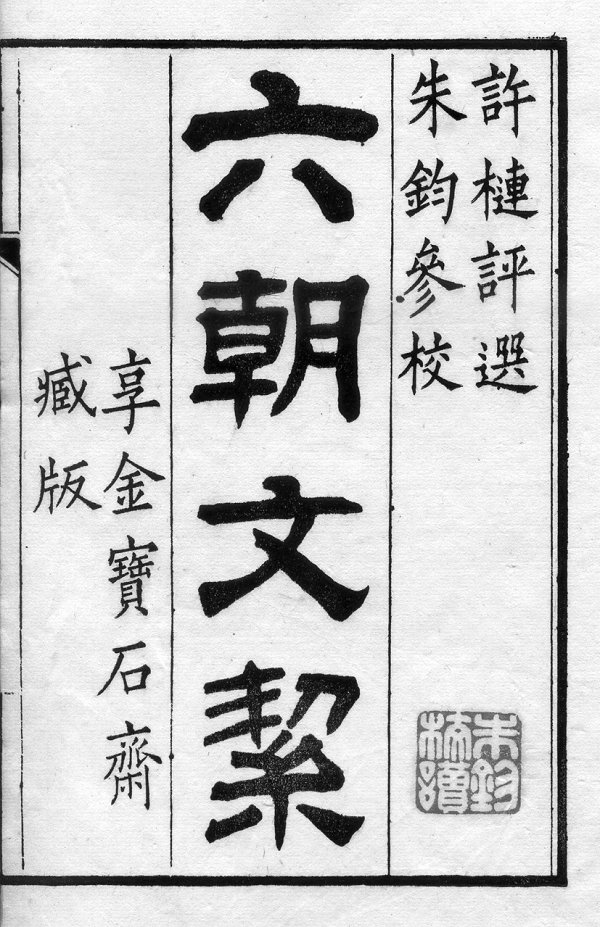 許槤評選
朱鈞參校
六朝文絜
享金寶石齋
臧版
朱鈞
校讀